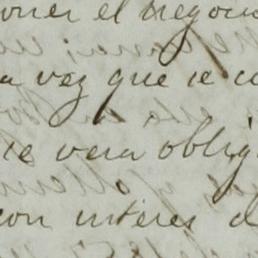 oner el negoci
a vez que se c
se vera oblig
con interes d